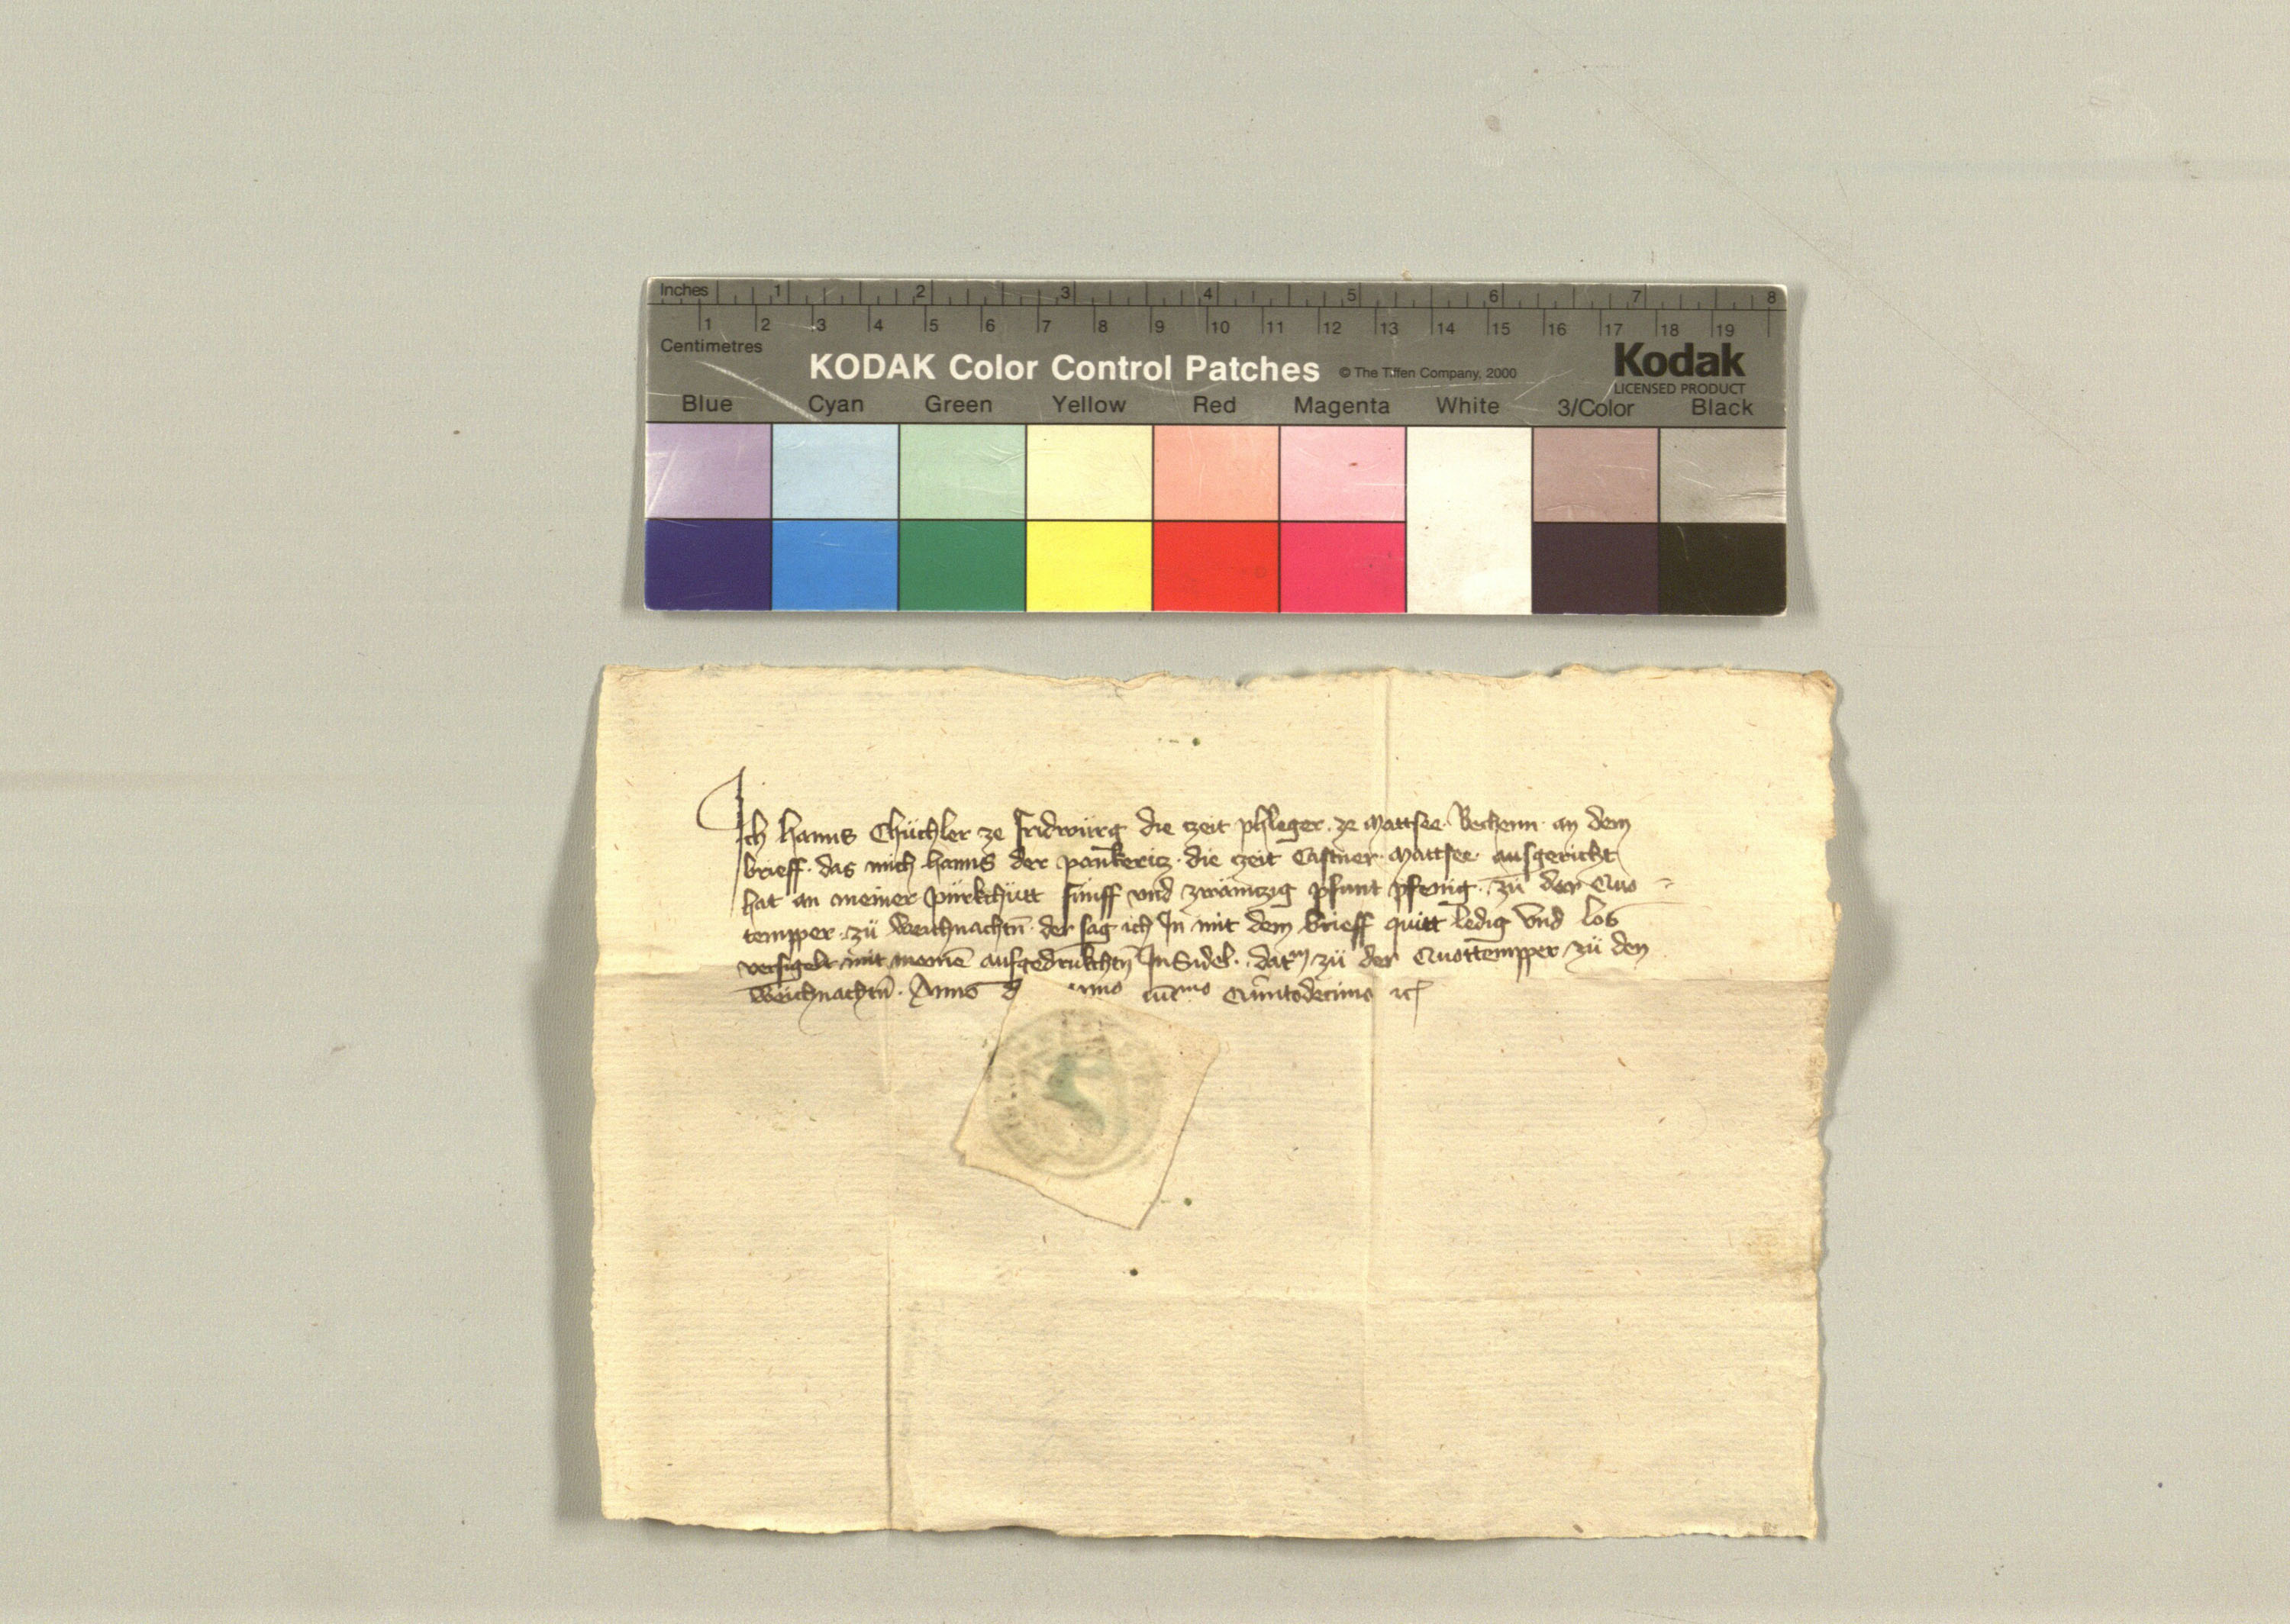 Inches 1 2 3 4 5 6 7 8
1 2 3 4 5 6 7 8 9 10 11 12 13 14 15 16 17 18 19
Centimetres
KODAK Color Control Patches © The Tiffen Company, 2000 Kodak
LICENSED PRODUCT
Blue Cyan Green Yellow Red Magenta White 3/Color Black
Ich hanns Chüchler ze fridwürg die zeit phleger ze Mattsee Bechenn an dem
brieff das mich hanns der pan̄kericz die zeit Castner Mattsee ausgericht
hat an meiner pürkchütt fünff vnd zwainczig pfunt pfenig zü der Quo
tempper zü Weichnachtn̄ der sag ich In mit dem brieff quitt ledig vnd los
versigelt mit meinē aufgedrukchtn̄ InSidel datm̄ zü der Quottempper zü den
Weichnachtn̄ Anno Quintodecimo